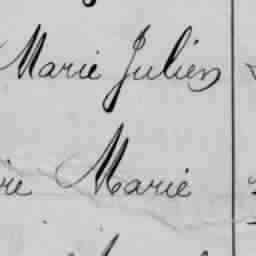 Marie Julien
re Marie